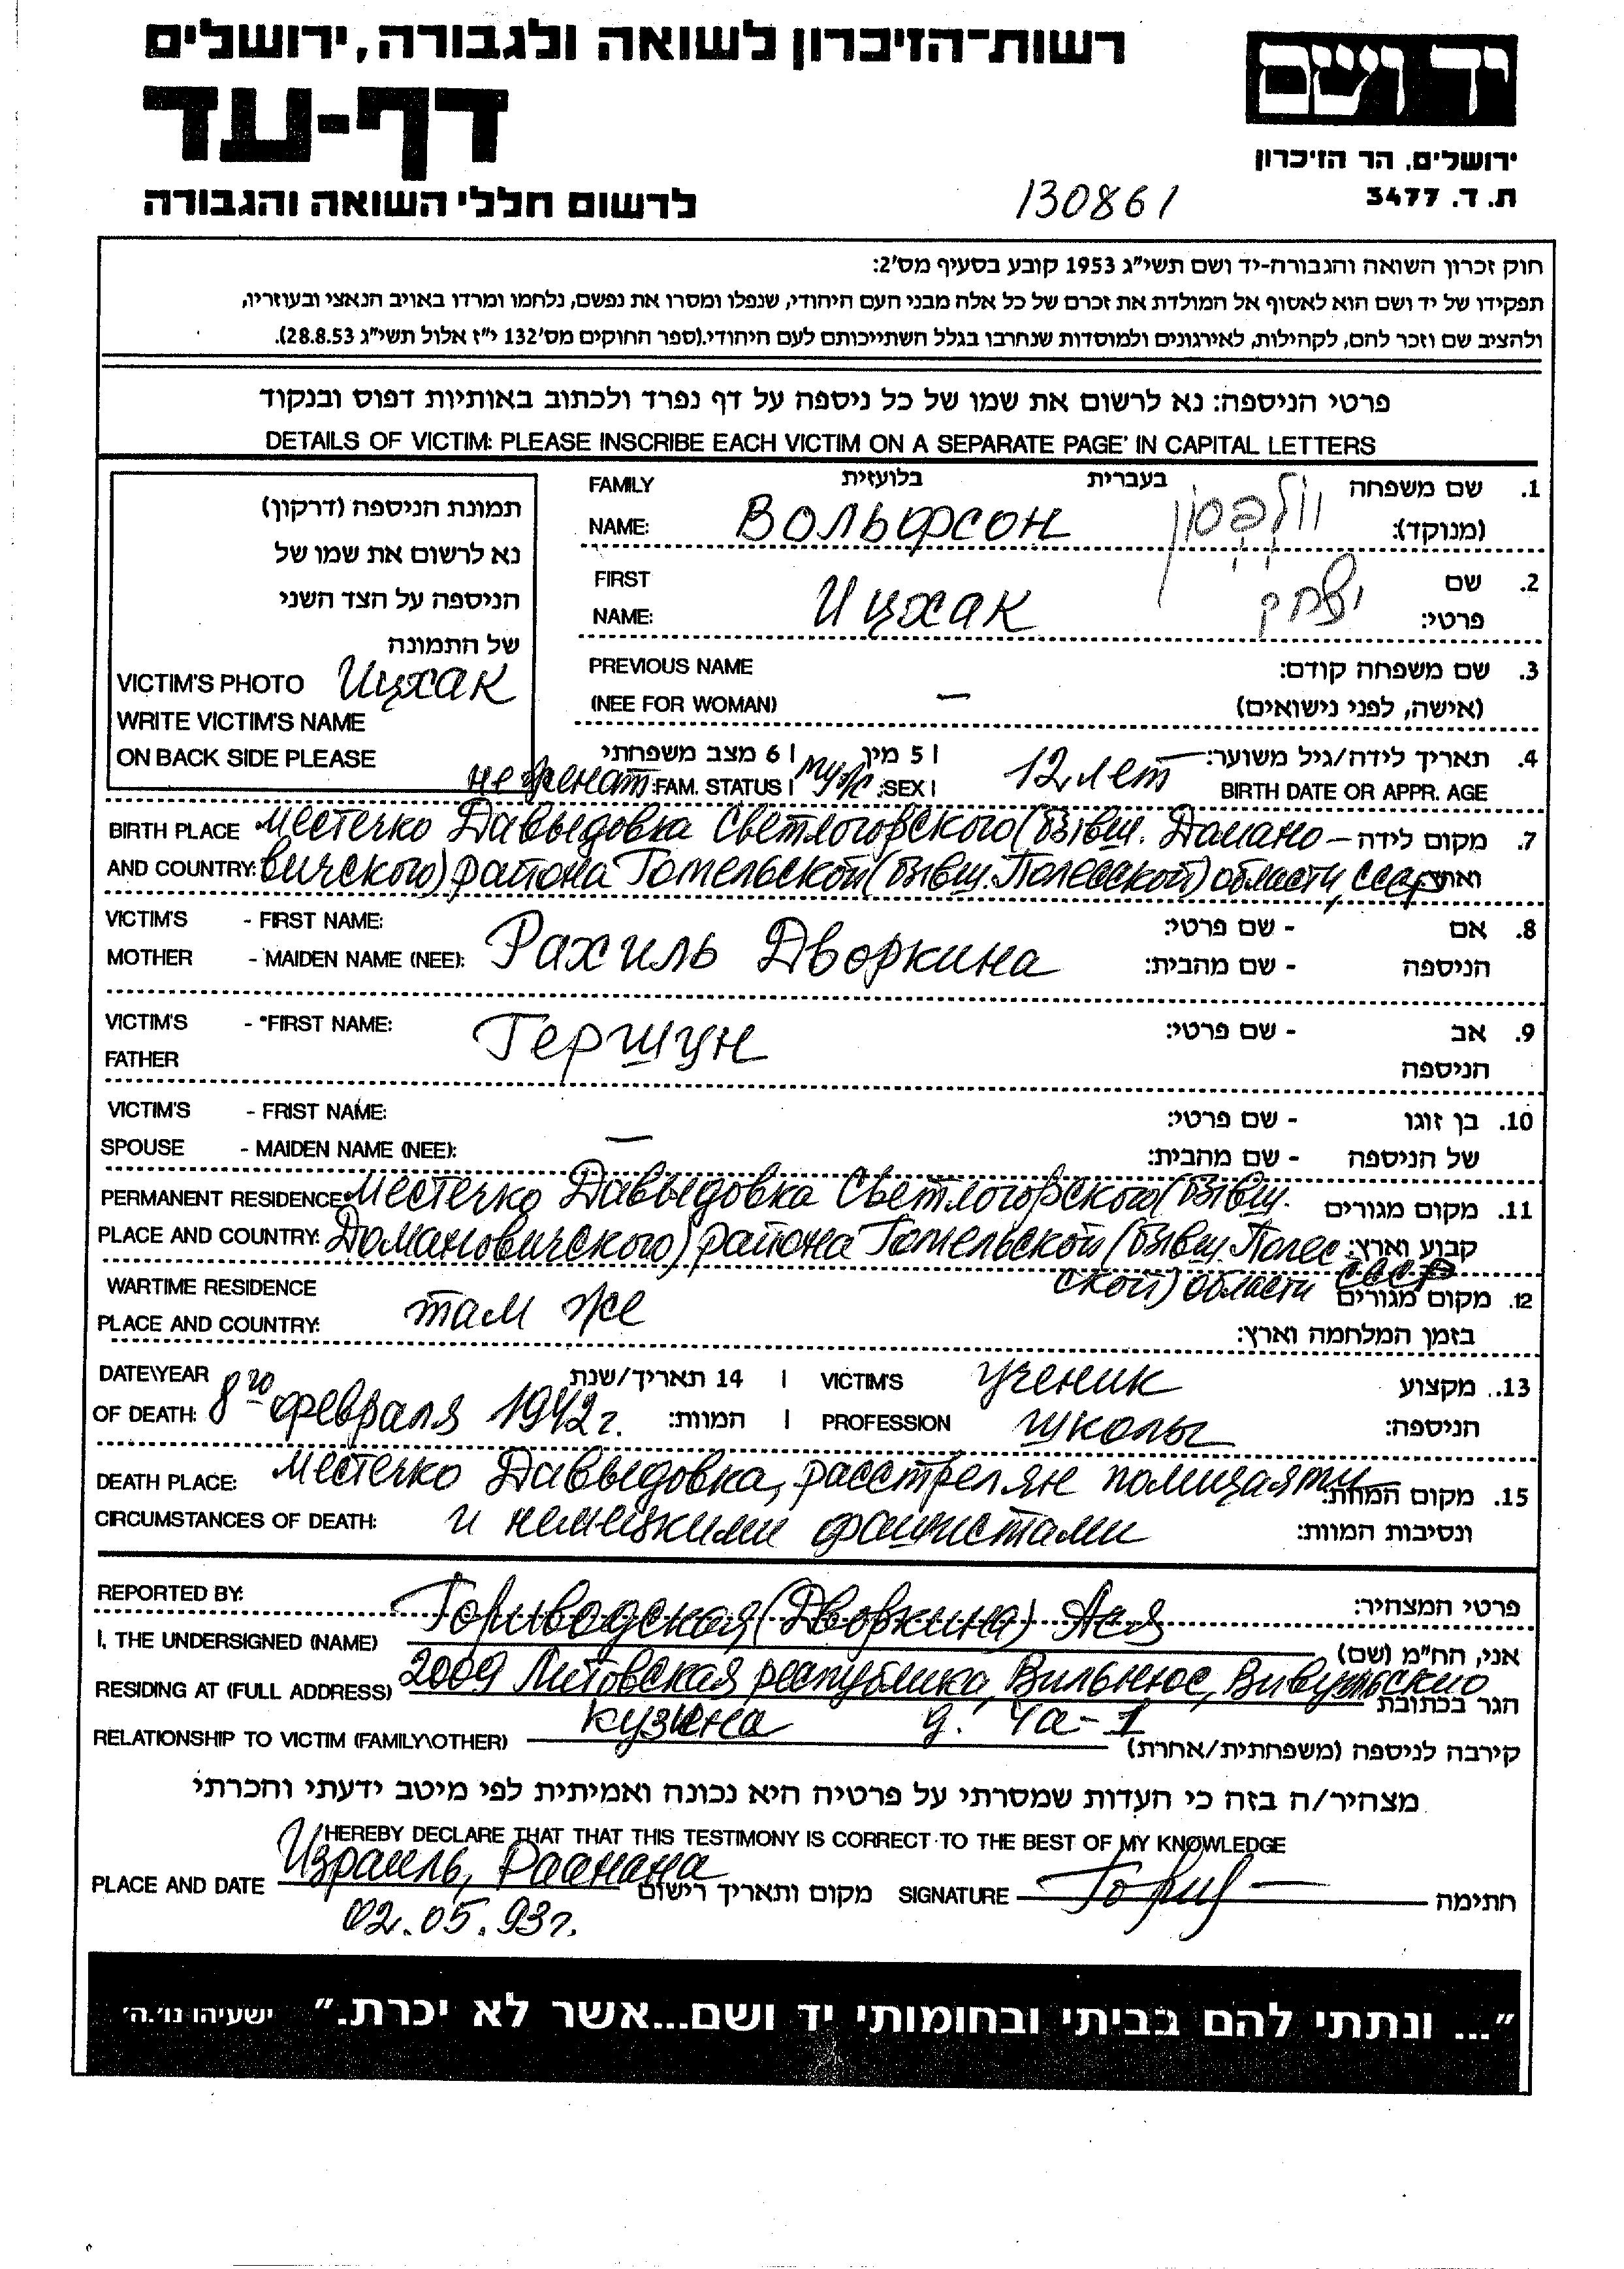 רשות-הזיכרון לשואה ולגבורה, ירושלים
דף-עד
לרשום חללי השואה והגבורה
יד ושם
ירושלים, הר הזיכרון
ת. ד. 3477
130861
חוק זכרון השואה והגבורה-יד ושם תשי"ג 1953 קובע בסעיף מס'2:
תפקידו של יד ושם הוא לאסוף אל המולדת את זכרם של כל אלה מבני העם היהודי, שנפלו ומסרו את נפשם, נלחמו ומרדו באויב הנאצי ובעוזריו,
ולהציב שם וזכר להם, לקהילות, לאירגונים ולמוסדות שנחרבו בגלל השתייכותם לעם היהודי.(ספר החוקים מס'132 י"ז אלול תשי"ג 28.8.53).
פרטי הניספה: נא לרשום את שמו של כל ניספה על דף נפרד ולכתוב באותיות דפוס ובנקוד
DETAILS OF VICTIM: PLEASE INSCRIBE EACH VICTIM ON A SEPARATE PAGE' IN CAPITAL LETTERS
תמונת הניספה (דרקון)
נא לרשום את שמו של
הניספה על הצד השני
של התמונה
VICTIM'S PHOTO Ицхак
WRITE VICTIM'S NAME
ON BACK SIDE PLEASE
FAMILY בלועזית בעברית 1. שם משפחה
NAME: Вольфсон וולפסון (מנוקד):
FIRST 2. שם
NAME: Ицхак יצחק פרטי:
PREVIOUS NAME 3. שם משפחה קודם:
(NEE FOR WOMAN) — (אישה, לפני נישואים)
6 מצב משפחתי | 5 מין | 4. תאריך לידה/גיל משוער:
не женат FAM. STATUS | муж. SEX | 12 лет BIRTH DATE OR APPR. AGE
BIRTH PLACE местечко Давыдовка Светлогорского (бывш. Домано- 7. מקום לידה
AND COUNTRY: вичского) района Гомельской (бывш. Полесской) области, СССР וארץ:
VICTIM'S - FIRST NAME: - שם פרטי: 8. אם
MOTHER - MAIDEN NAME (NEE): Рахиль Дворкина - שם מהבית: הניספה
VICTIM'S - "FIRST NAME: Гершун - שם פרטי: 9. אב
FATHER הניספה
VICTIM'S - FRIST NAME: - שם פרטי: 10. בן זוגו
SPOUSE - MAIDEN NAME (NEE): — - שם מהבית: של הניספה
PERMANENT RESIDENCE местечко Давыдовка Светлогорского (бывш. 11. מקום מגורים
PLACE AND COUNTRY: Домановичского) района Гомельской (бывш. Полес קבוע וארץ:
WARTIME RESIDENCE ской) области СССР 12. מקום מגורים
PLACE AND COUNTRY: там же בזמן המלחמה וארץ:
DATE\YEAR 14 תאריך/שנת | VICTIM'S ученик 13. מקצוע
OF DEATH: 8го февраля 1942 г. המוות: | PROFESSION школы הניספה:
DEATH PLACE: местечко Давыдовка, расстрелян полицаями 15. מקום המוות:
CIRCUMSTANCES OF DEATH: и немецкими фашистами ונסיבות המוות:
REPORTED BY: פרטי המצהיר:
I, THE UNDERSIGNED (NAME) Гориводская (Дворкина) Ася אני, הח"מ (שם)
RESIDING AT (FULL ADDRESS) 2009 Литовская республика, Вильнюс, Вивульскио הגר בכתובת
RELATIONSHIP TO VICTIM (FAMILY\OTHER) кузина д. 4а-1 קירבה לניספה (משפחתית/אחרת)
מצהיר/ה בזה כי העדות שמסרתי על פרטיה היא נכונה ואמיתית לפי מיטב ידעתי והכרתי
I HEREBY DECLARE THAT THAT THIS TESTIMONY IS CORRECT TO THE BEST OF MY KNOWLEDGE
PLACE AND DATE Израиль, Раанана מקום ותאריך רישום SIGNATURE חתימה
02.05.93г.
"... ונתתי להם בביתי ובחומותי יד ושם...אשר לא יכרת." ישעיהו נו'.ה'